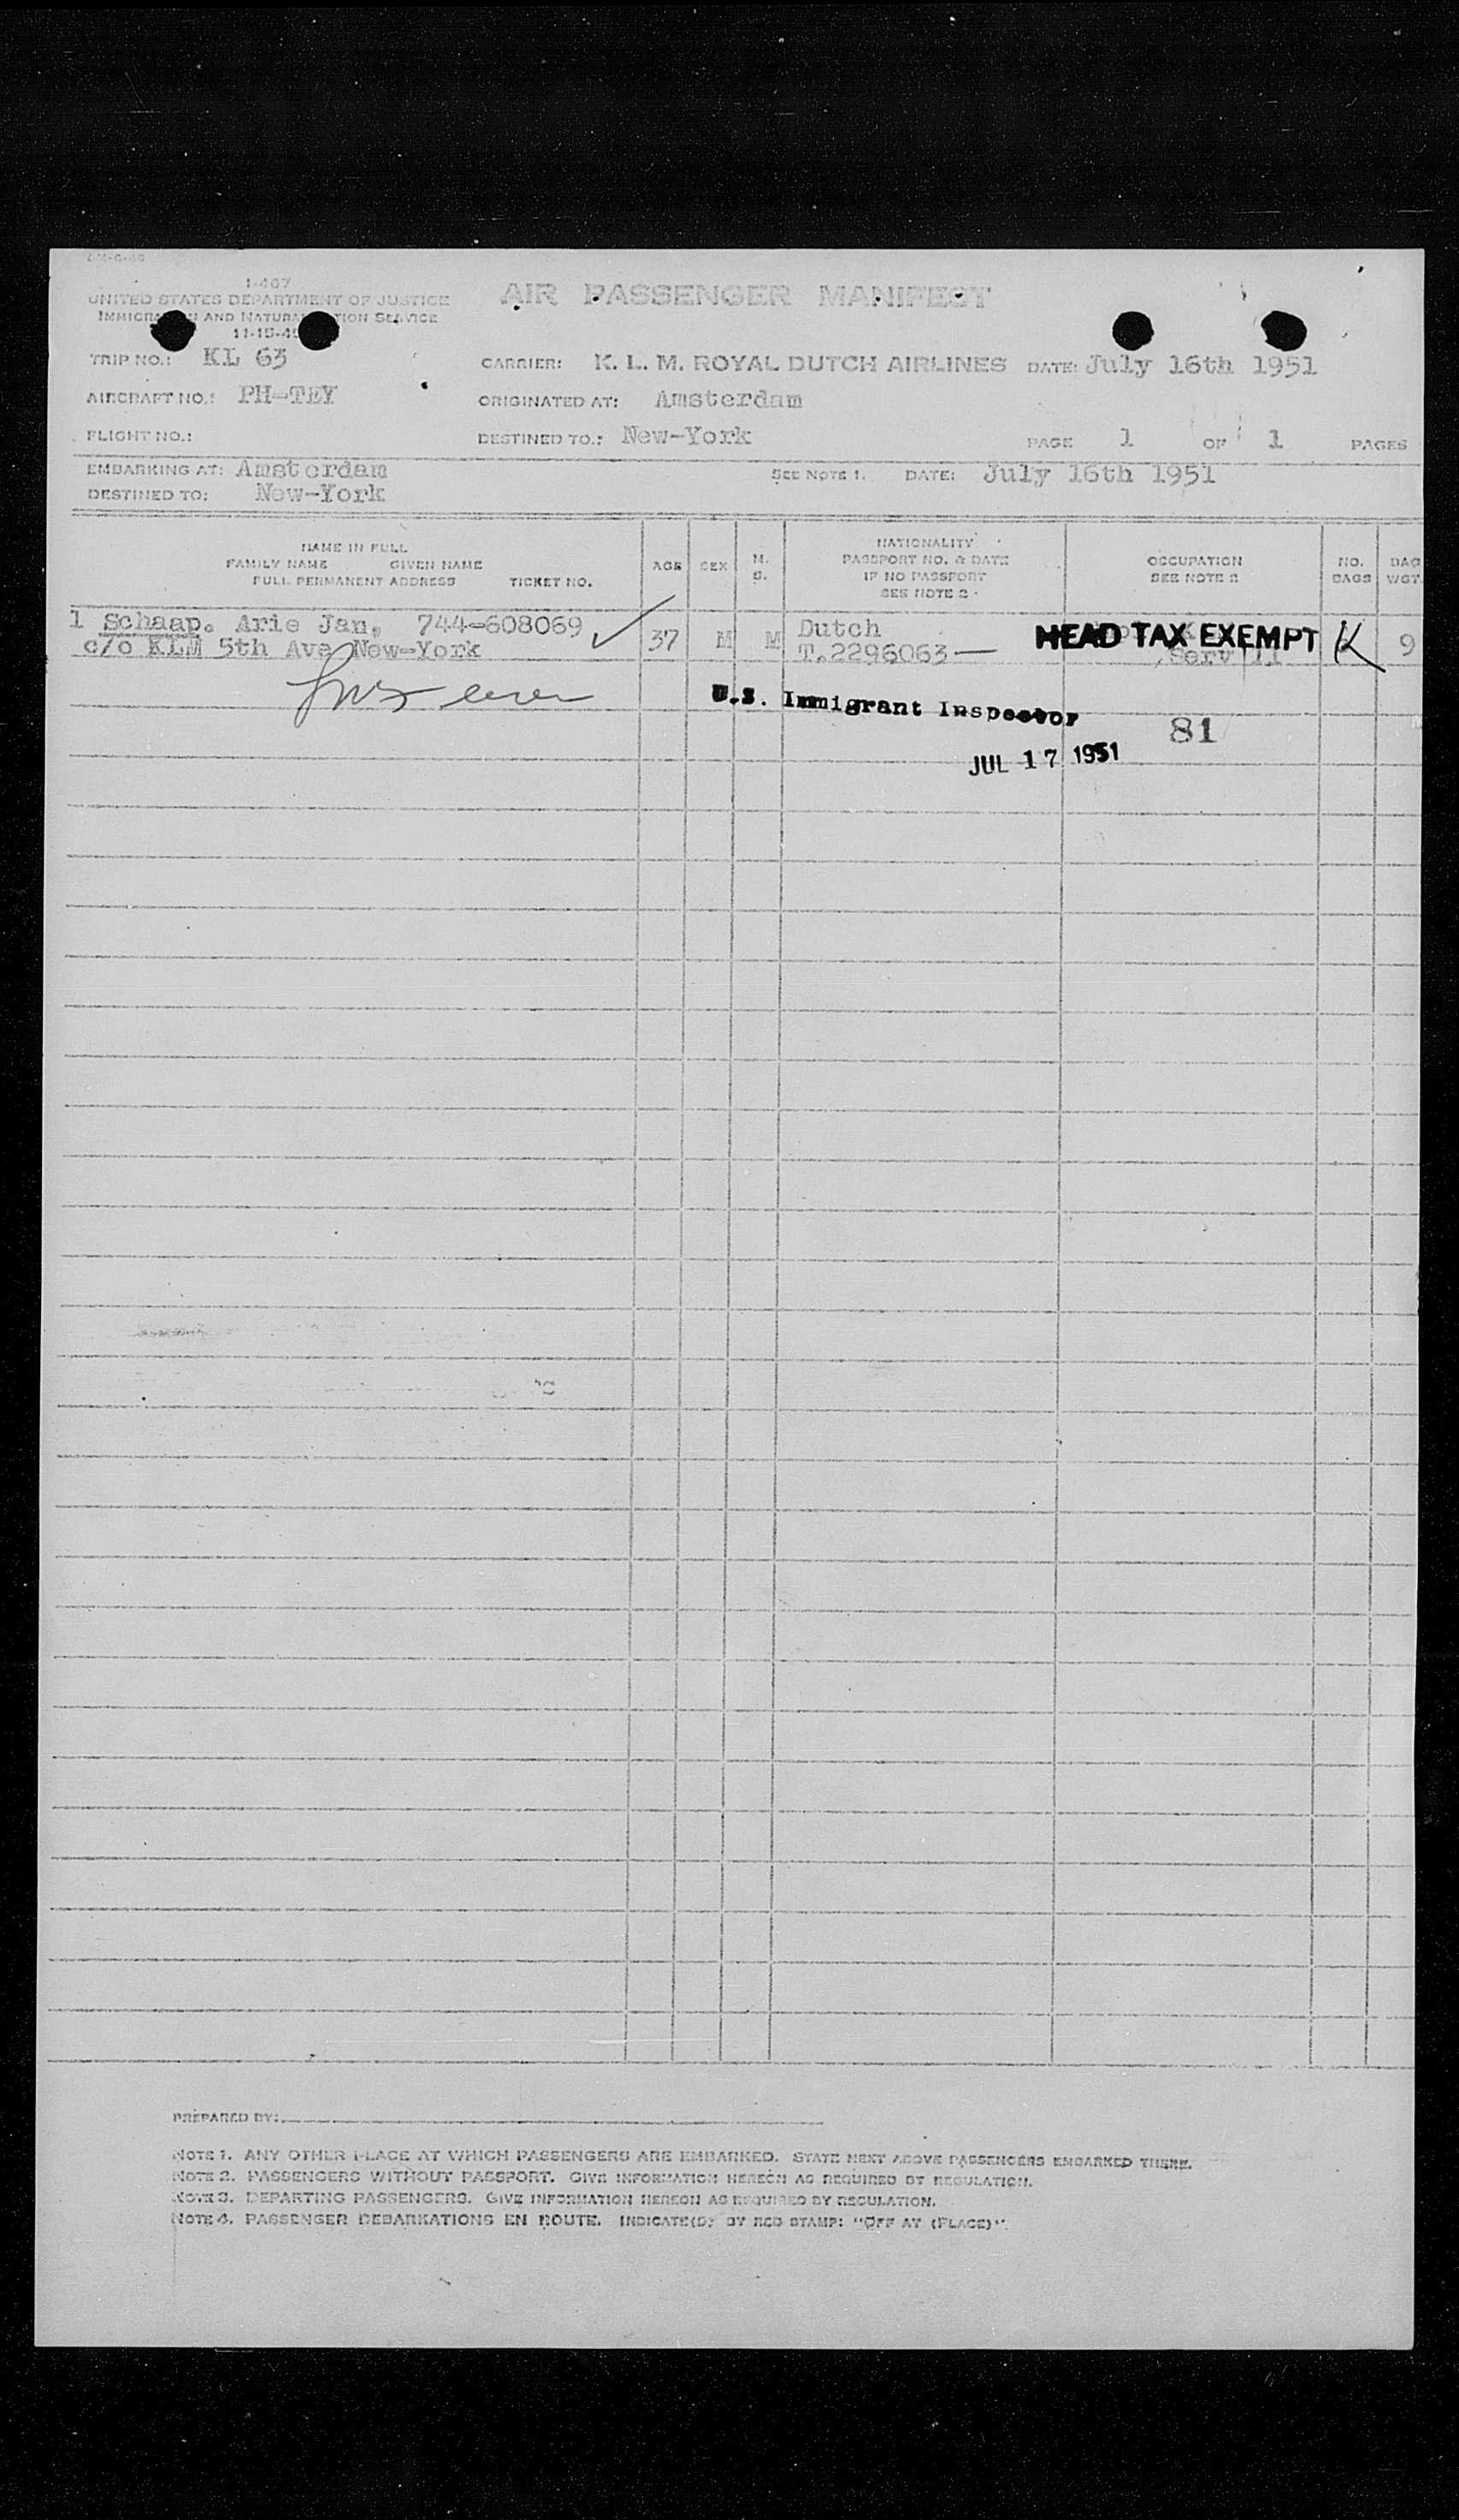 I-407
UNITED STATES DEPARTMENT OF JUSTICE
AIR PASSENGER MANIFEST
IMMIGRATION AND NATURALIZATION SERVICE
11-15-45
TRIP NO.: KL 63 CARRIER: K. L. M. ROYAL DUTCH AIRLINES DATE: July 16th 1951
AIRCRAFT NO.: PH-TEY ORIGINATED AT: Amsterdam
FLIGHT NO.: DESTINED TO.: New-York PAGE 1 OF 1 PAGES
EMBARKING AT: Amsterdam SEE NOTE 1. DATE: July 16th 1951
DESTINED TO: New-York
NAME IN FULL
FAMILY NAME GIVEN NAME
FULL PERMANENT ADDRESS TICKET NO.
AGE SEX M. S.
NATIONALITY
PASSPORT NO. & DATE
IF NO PASSPORT
SEE NOTE 2
OCCUPATION
SEE NOTE 2
NO. BAGS
BAG WGT.
1 Schaap. Arie Jan, 744-608069 37 M M Dutch HEAD TAX EXEMPT K 9
c/o KLM 5th Ave New-York T.2296063 Serv
U.S. Immigrant Inspector
81
JUL 17 1951
PREPARED BY:
NOTE 1. ANY OTHER PLACE AT WHICH PASSENGERS ARE EMBARKED. STATE NEXT ABOVE PASSENGERS EMBARKED THERE.
NOTE 2. PASSENGERS WITHOUT PASSPORT. GIVE INFORMATION HEREON AS REQUIRED BY REGULATION.
NOTE 3. DEPARTING PASSENGERS. GIVE INFORMATION HEREON AS REQUIRED BY REGULATION.
NOTE 4. PASSENGER DEBARKATIONS EN ROUTE. INDICATE(D) BY RED STAMP: "OFF AT (PLACE)".